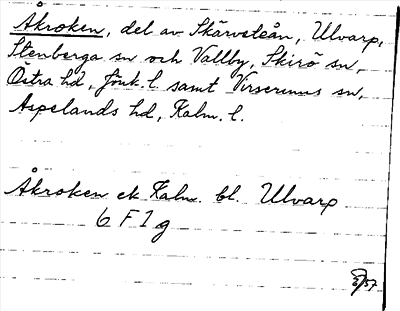 Åkroken, del av Skärveteån, Ulvarp,
Stenberga sn och Vallby, Skirö sn,
Östra hd, Jönk. l. samt Virserums sn,
Aspelands hd, Kalm. l.
Åkroken ek Kalm. bl. Ulvarp
6 F 1 g